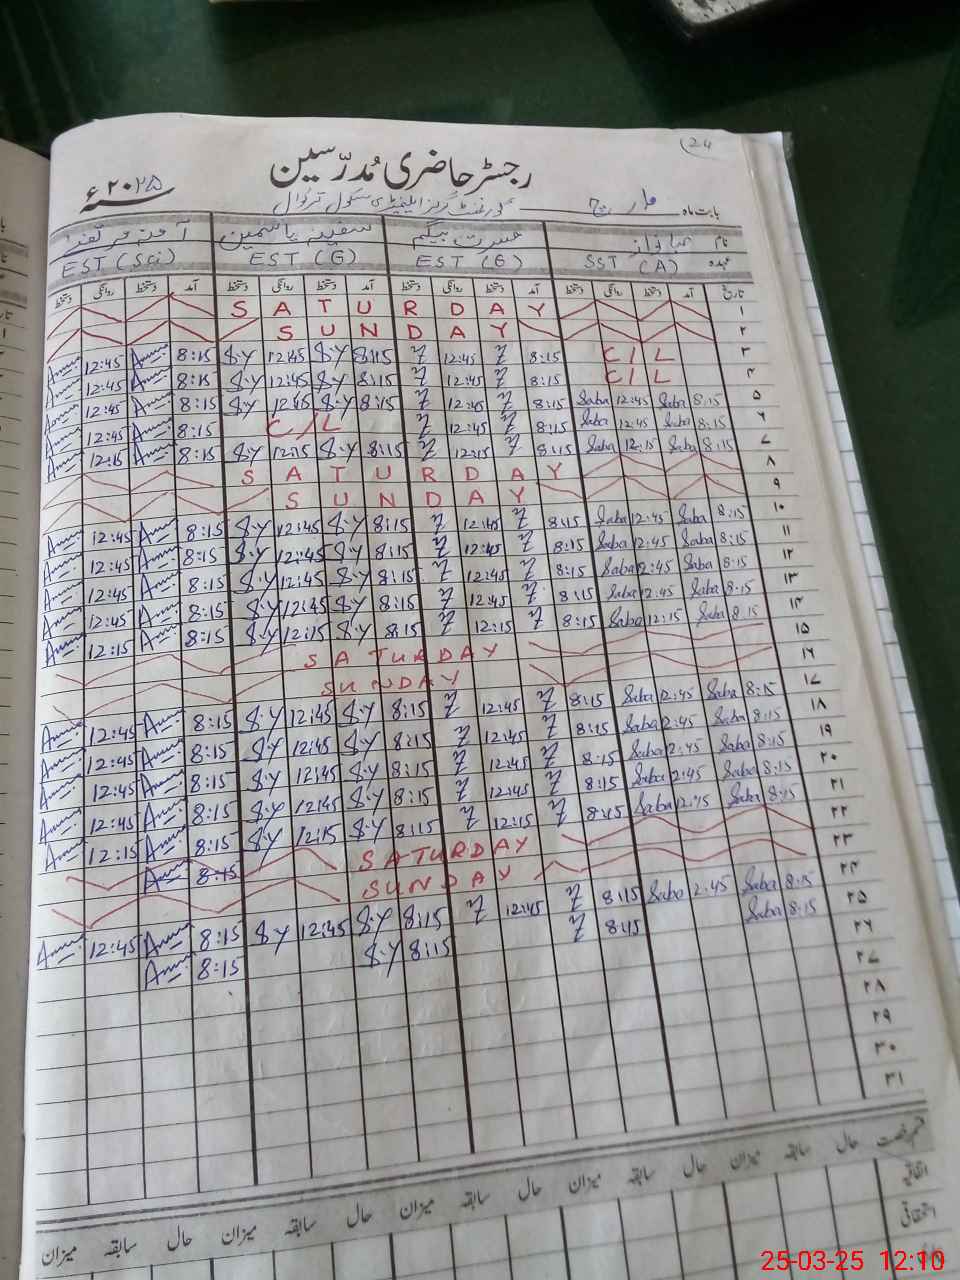 24
رجسٹر حاضری مُدرّسین
سنہ ۲۰۲۵ء
بابت ماہ مارچ گورنمنٹ گرلز ایلیمنٹری سکول
نام صبا ناز حسرت بیگم سفینہ یاسمین
عہدہ SST (A) EST (G) EST (G) EST (Sci)
تاریخ آمد دستخط روانگی دستخط آمد دستخط روانگی دستخط آمد دستخط روانگی دستخط آمد دستخط روانگی دستخط
۱ SATURDAY
۲ SUNDAY
۳ C/L 8:15 Z 12:45 Z 8:15 S.Y 12:45 S.Y 8:15 12:45
۴ C/L 8:15 Z 12:45 Z 8:15 S.Y 12:45 S.Y 8:15 12:45
۵ 8:15 Saba 12:45 Saba 8:15 Z 12:45 Z 8:15 S.Y 12:45 S.Y 8:15 12:45
۶ 8:15 Saba 12:45 Saba 8:15 Z 12:45 Z C/L 8:15 12:45
۷ 8:15 Saba 12:15 Saba 8:15 Z 12:15 Z 8:15 S.Y 12:15 S.Y 8:15 12:15
۸ SATURDAY
۹ SUNDAY
۱۰ 8:15 Saba 12:45 Saba 8:15 Z 12:45 Z 8:15 S.Y 12:45 S.Y 8:15 12:45
۱۱ 8:15 Saba 12:45 Saba 8:15 Z 12:45 Z 8:15 S.Y 12:45 S.Y 8:15 12:45
۱۲ 8:15 Saba 2:45 Saba 8:15 Z 12:45 Z 8:15 S.Y 12:45 S.Y 8:15 12:45
۱۳ 8:15 Saba 12:45 Saba 8:15 Z 12:45 Z 8:15 S.Y 12:45 S.Y 8:15 12:45
۱۴ 8:15 Saba 12:15 Saba 8:15 Z 12:15 Z 8:15 S.Y 12:15 S.Y 8:15 12:15
۱۵ SATURDAY
۱۶ SUNDAY
۱۷ 8:15 Saba 2:45 Saba 8:15 Z 12:45 Z 8:15 S.Y 12:45 S.Y 8:15 12:45
۱۸ 8:15 Saba 2:45 Saba 8:15 Z 12:45 Z 8:15 S.Y 12:45 S.Y 8:15 12:45
۱۹ 8:15 Saba 2:45 Saba 8:15 Z 12:45 Z 8:15 S.Y 12:45 S.Y 8:15 12:45
۲۰ 8:15 Saba 2:45 Saba 8:15 Z 12:45 Z 8:15 S.Y 12:45 S.Y 8:15 12:45
۲۱ 8:15 Saba 12:15 Saba 8:15 Z 12:15 Z 8:15 S.Y 12:15 S.Y 8:15 12:15
۲۲ SATURDAY 8:15
۲۳ SUNDAY
۲۴ 8:15 Saba 2:45 Saba 8:15 Z 12:45 Z 8:15 S.Y 12:45 S.Y 8:15 12:45
۲۵ 8:15 Saba 8:15 Z 8:15 S.Y 8:15
۲۶
۲۷
۲۸
۲۹
۳۰
۳۱
قسم رخصت حال سابقہ میزان حال سابقہ میزان حال سابقہ میزان حال سابقہ میزان
اتفاقیہ
استحقاقی
25-03-25 12:10